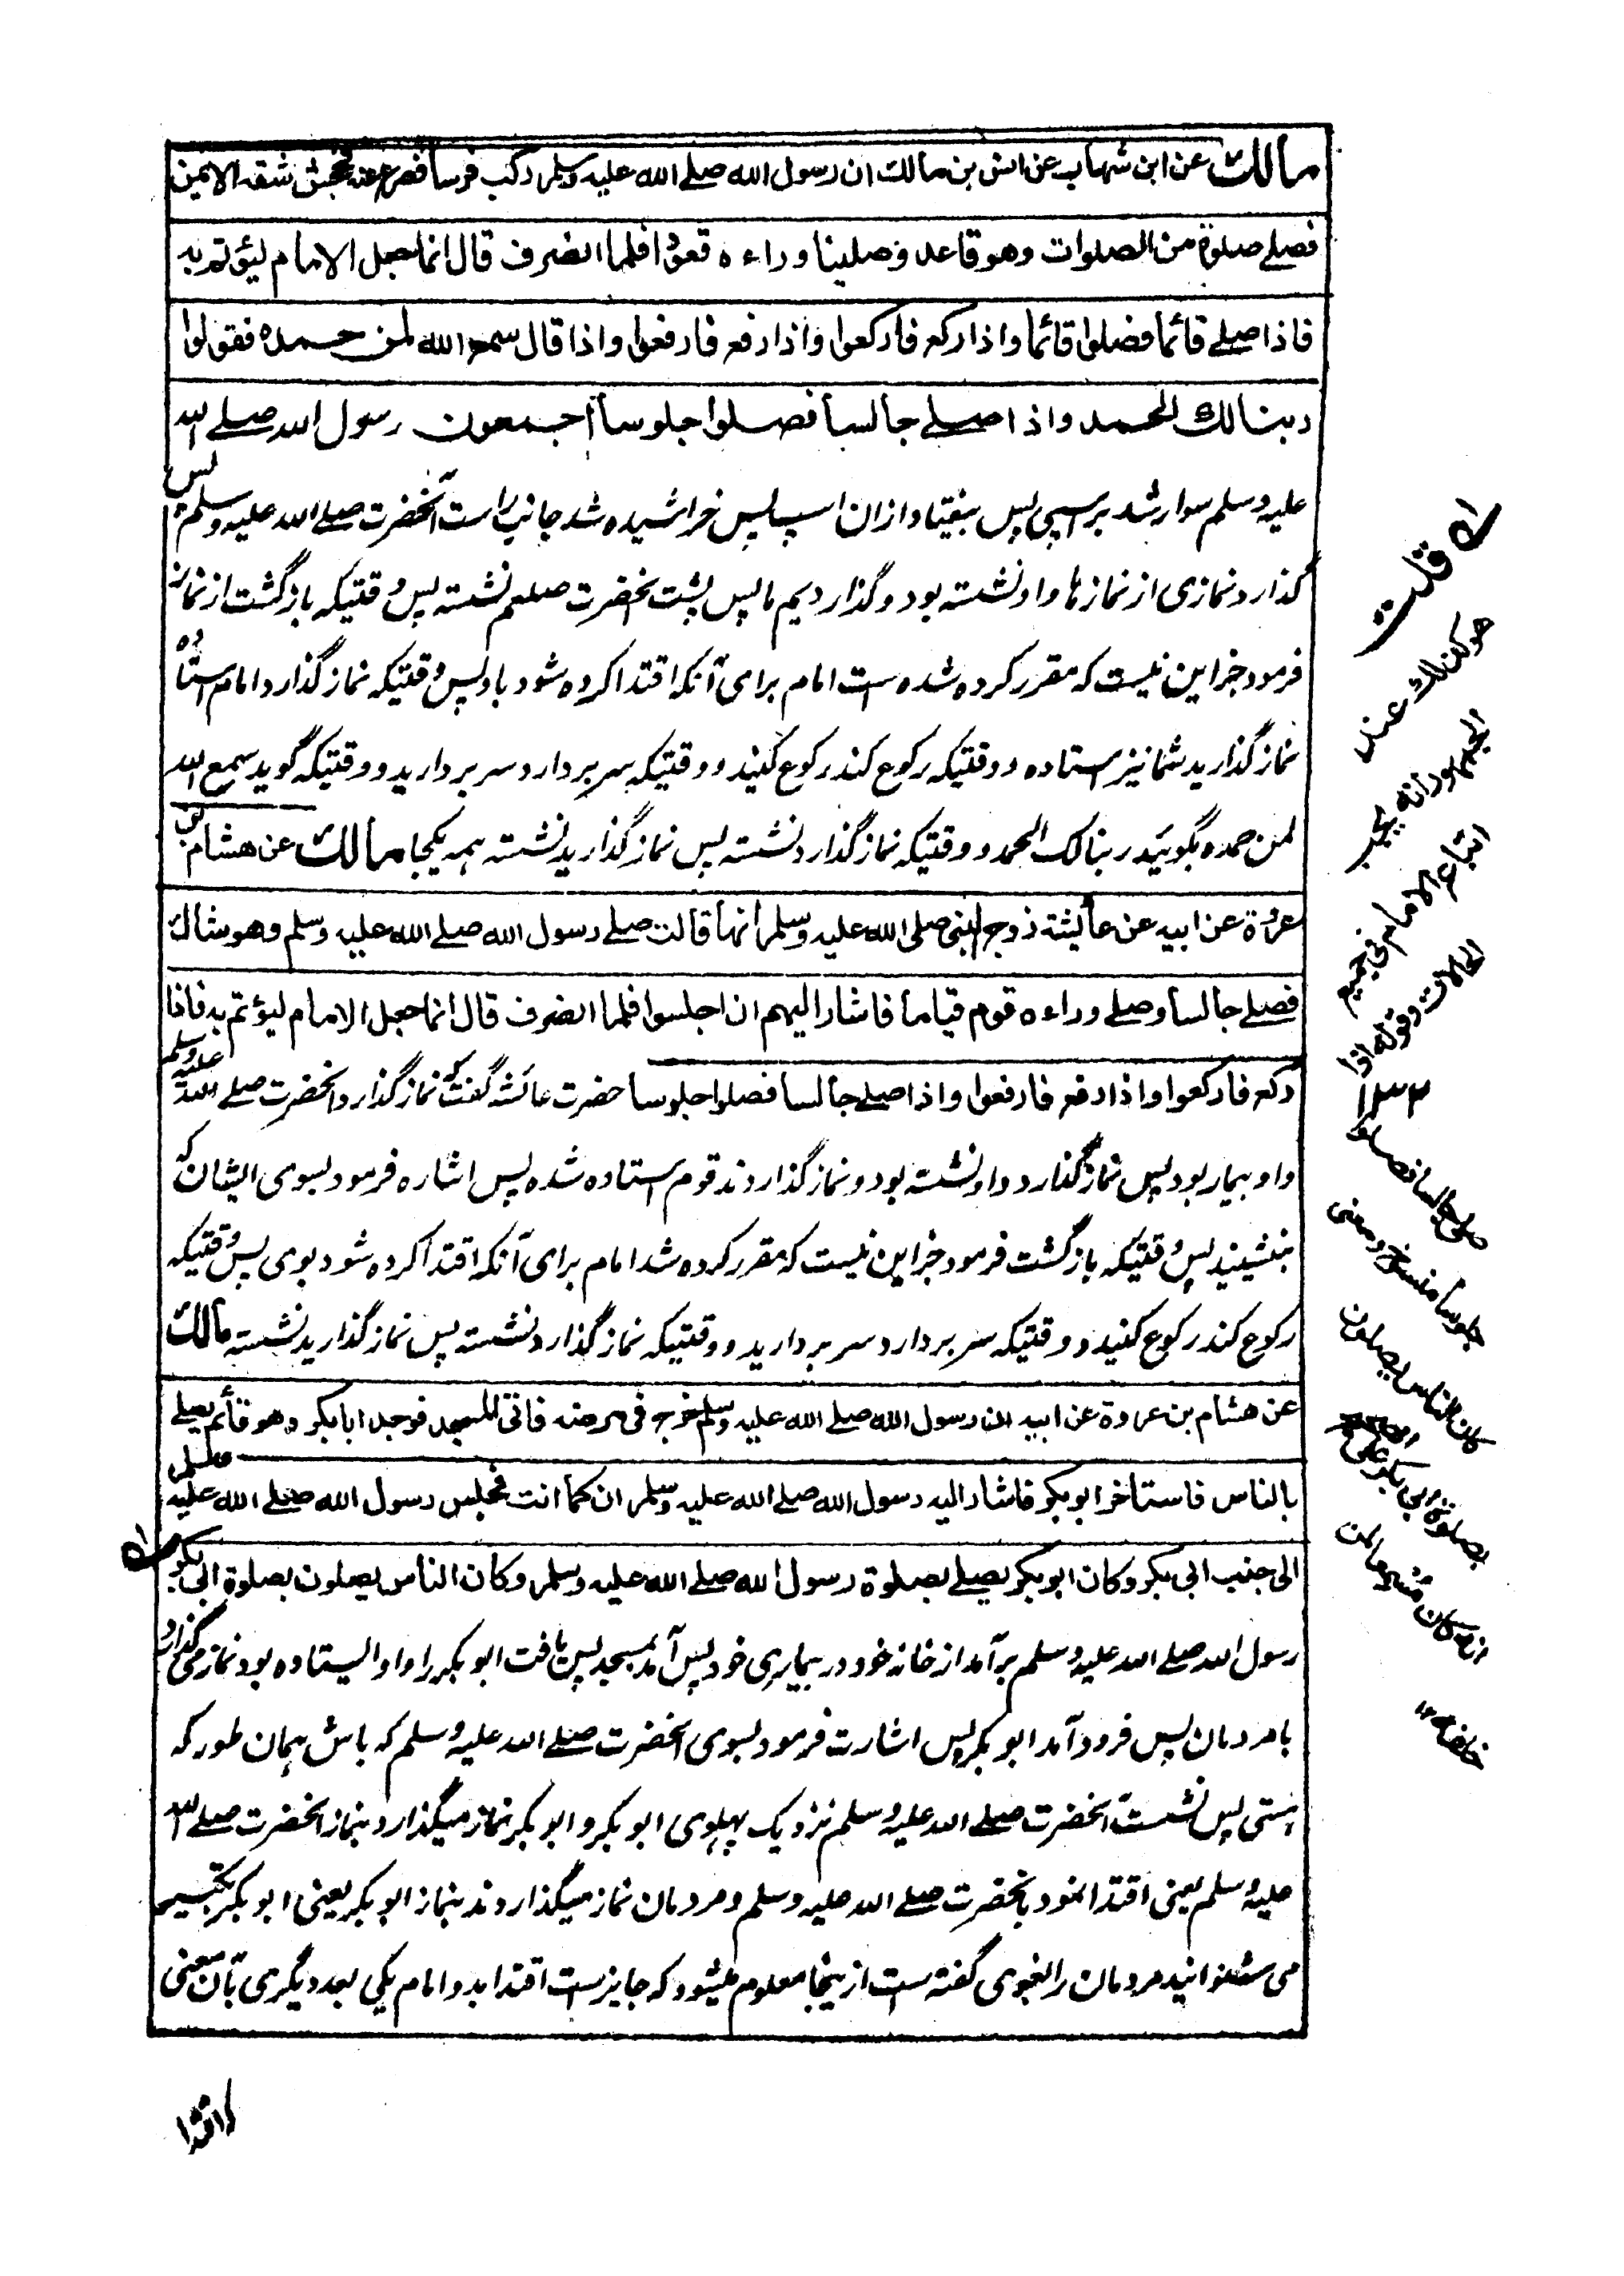 مالك عن ابن شهاب عن انس بن مالك ان رسول الله صلے الله عليه وسلم ركب فرسا فصرع عنه فجحش شقه الايمن
فصلے صلوة من الصلوات وهو قاعد وصلينا وراءه قعودا فلما انصرف قال انما جعل الامام ليؤتم به
فاذا صلے قائما فصلوا قائما واذا ركع فاركعوا واذا رفع فارفعوا واذا قال سمع الله لمن حمده فقولوا
ربنا لك الحمد واذا صلے جالسا فصلوا جلوسا اجمعون رسول الله صلے الله
عليه وسلم سوار شد بر اسپی پس بیفتاد ازان اسپ پس خراشیده شد جانب راست آنحضرت صلے الله علیه وسلم پس
گذارد نمازی از نمازها و او نشسته بود و گذاردیم ما پس پشت آنحضرت صلعم نشسته پس وقتیکه بازگشت از نماز
فرمود جز این نیست که مقرر کرده شده است امام برای آنکه اقتدا کرده شود باو پس وقتیکه نماز گذارد امام استاده
نماز گذارید شما نیز استاده و وقتیکه رکوع کند رکوع کنید و وقتیکه سر بردارد سر بردارید و وقتیکه گوید سمع الله
لمن حمده بگوئید ربنا لک الحمد و وقتیکه نماز گذارد نشسته پس نماز گذارید نشسته همه یکجا مالك عن هشام بن
عروة عن ابيه عن عائشة زوج النبی صلی الله عليه وسلم انها قالت صلے رسول الله صلے الله عليه وسلم وهو شاك
فصلے جالسا وصلے وراءه قوم قياما فاشار اليهم ان اجلسوا فلما انصرف قال انما جعل الامام ليؤتم به فاذا
ركع فاركعوا واذا رفع فارفعوا واذا صلے جالسا فصلوا جلوسا حضرت عائشه گفت که نماز گذارد آنحضرت صلے الله علیه وسلم
و او بیمار بود پس نماز گذارد و او نشسته بود و نماز گذاردند قوم استاده شده پس اشاره فرمود بسوی ایشان که
بنشینید پس وقتیکه بازگشت فرمود جز این نیست که مقرر کرده شد امام برای آنکه اقتدا کرده شود بوی پس وقتیکه
رکوع کند رکوع کنید و وقتیکه سر بردارد سر بردارید و وقتیکه نماز گذارد نشسته پس نماز گذارید نشسته مالك
عن هشام بن عروة عن ابيه ان رسول الله صلے الله عليه وسلم خرج فی مرضه فاتی المسجد فوجد ابا بكر وهو قائم يصلے
بالناس فاستاخر ابو بكر فاشار اليه رسول الله صلے الله عليه وسلم ان كما انت فجلس رسول الله صلے الله عليه وسلم
الی جنب ابی بكر وكان ابو بكر يصلے بصلوة رسول الله صلے الله عليه وسلم وكان الناس يصلون بصلوة ابی بكر
رسول الله صلے الله علیه وسلم برآمد از خانه خود در بیماری خود پس آمد بمسجد پس یافت ابوبکر را و او ایستاده بود نماز می گذارد
با مردمان پس فرود آمد ابوبکر پس اشارت فرمود بسوی آنحضرت صلے الله علیه وسلم که باش همان طور که
هستی پس نشست آنحضرت صلے الله علیه وسلم نزدیک پهلوی ابوبکر و ابوبکر نماز میگذارد بنماز آنحضرت صلے الله
علیه وسلم یعنی اقتدا نمود بآنحضرت صلے الله علیه وسلم و مردمان نماز میگذاردند بنماز ابوبکر یعنی ابوبکر تکبیر
می شنوانید مردمان را بغوی گفته است ازینجا معلوم میشود که جایز است اقتدا بدو امام یکی بعد دیگری بآن معنی
قلت
هو كذلك عند
الجمهور انه يجب
اتباع الامام فی جميع
الحالات وقوله اذا
صلی جالسا فصلوا
جلوسا منسوخ ومعنی
كان الناس يصلون
بصلوة ابی بكر
خلفه ١٢
اقتدا